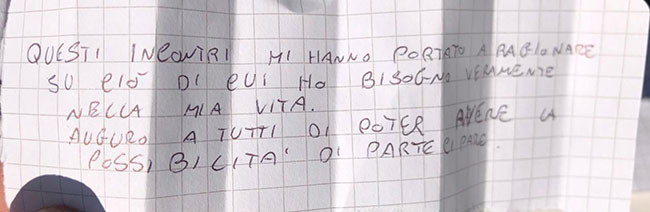 QUESTI INCONTRI MI HANNO PORTATO A RAGIONARE
SU CIÒ DI CUI HO BISOGNO VERAMENTE
NELLA MIA VITA.
AUGURO A TUTTI DI POTER AVERE LA
POSSIBILITA' DI PARTECIPARE.